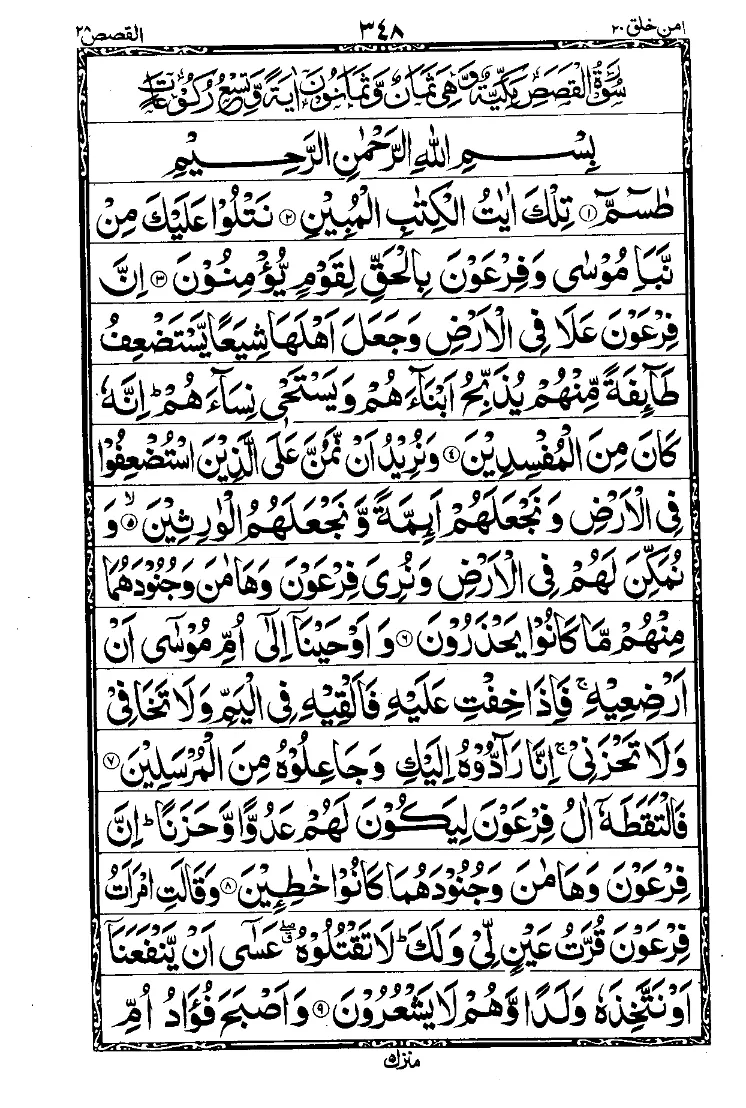 امن خلق ٢٠
٣٤٨
القصص ٢٨
سُوْرَةُ الْقَصَصِ مَكِّيَّةٌ وَّهِىَ ثَمَانٌ وَّثَمَانُوْنَ اٰيَةً وَّتِسْعُ رُكُوْعَاتٍ
بِسْمِ اللّٰهِ الرَّحْمٰنِ الرَّحِيْمِ
طٰسٓمّٓ ۝١ تِلْكَ اٰيٰتُ الْكِتٰبِ الْمُبِيْنِ ۝٢ نَتْلُوْا عَلَيْكَ مِنْ
نَّبَاِ مُوْسٰى وَفِرْعَوْنَ بِالْحَقِّ لِقَوْمٍ يُّؤْمِنُوْنَ ۝٣ اِنَّ
فِرْعَوْنَ عَلَا فِى الْاَرْضِ وَجَعَلَ اَهْلَهَا شِيَعًا يَّسْتَضْعِفُ
طَآىِٕفَةً مِّنْهُمْ يُذَبِّحُ اَبْنَآءَهُمْ وَيَسْتَحْىٖ نِسَآءَهُمْ ؕ اِنَّهٗ
كَانَ مِنَ الْمُفْسِدِيْنَ ۝٤ وَنُرِيْدُ اَنْ نَّمُنَّ عَلَى الَّذِيْنَ اسْتُضْعِفُوْا
فِى الْاَرْضِ وَنَجْعَلَهُمْ اَىِٕمَّةً وَّنَجْعَلَهُمُ الْوٰرِثِيْنَ ۙ۝٥ وَ
نُمَكِّنَ لَهُمْ فِى الْاَرْضِ وَنُرِىَ فِرْعَوْنَ وَهَامٰنَ وَجُنُوْدَهُمَا
مِنْهُمْ مَّا كَانُوْا يَحْذَرُوْنَ ۝٦ وَاَوْحَيْنَآ اِلٰٓى اُمِّ مُوْسٰٓى اَنْ
اَرْضِعِيْهِ ۚ فَاِذَا خِفْتِ عَلَيْهِ فَاَلْقِيْهِ فِى الْيَمِّ وَلَا تَخَافِىْ
وَلَا تَحْزَنِىْ ۚ اِنَّا رَآدُّوْهُ اِلَيْكِ وَجَاعِلُوْهُ مِنَ الْمُرْسَلِيْنَ ۝٧
فَالْتَقَطَهٗٓ اٰلُ فِرْعَوْنَ لِيَكُوْنَ لَهُمْ عَدُوًّا وَّحَزَنًا ؕ اِنَّ
فِرْعَوْنَ وَهَامٰنَ وَجُنُوْدَهُمَا كَانُوْا خٰطِـِٕيْنَ ۝٨ وَقَالَتِ امْرَاَتُ
فِرْعَوْنَ قُرَّتُ عَيْنٍ لِّىْ وَلَكَ ؕ لَا تَقْتُلُوْهُ ۖۗ عَسٰٓى اَنْ يَّنْفَعَنَآ
اَوْ نَتَّخِذَهٗ وَلَدًا وَّهُمْ لَا يَشْعُرُوْنَ ۝٩ وَاَصْبَحَ فُؤَادُ اُمِّ
منزل ٥